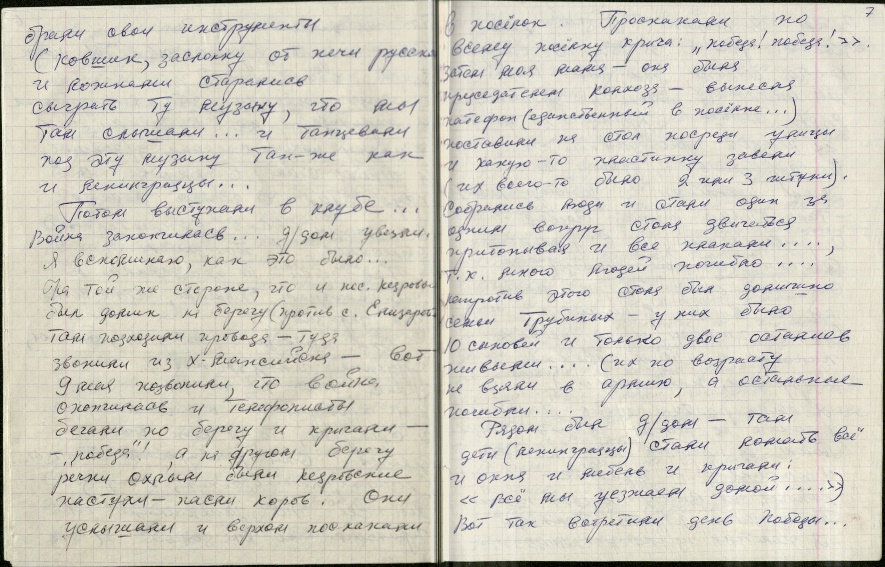 брали свои инструменты
(ковшик, заслонку от печи русской
и ложками старались
сыграть ту музыку, что мы
там слышали... и танцевали
под эту музыку так-же как
и ленинградцы...
Потом выступали в клубе...
Война закончилась... д/дом уехали.
Я вспоминаю, как это было...
На той же стороне, что и пос. Кедровы
был домик на берегу (против с. Елизаров
там подходили провода – туда
звонили из Х-Мансийска – вот
9 мая позвонили, что война
окончилась и телефонисты
бегали по берегу и кричали –
- „победа"! а на другом берегу
речки были кедровские
пастухи – пасли коров. Они
услышали и верхом поскакали
7
в посёлок. Проскакали по
всему посёлку крича: „победа! победа!>>.
Затем моя мама – она была
председателем колхоза – вынесла
патефон (единственный в посёлке...)
поставили на стол посреди улицы
и какую-то пластинку завели
(их всего-то было 2 или 3 штуки).
Собрались люди и стали один за
одним вокруг стола двигаться
притопывая и все плакали....,
т.к. много людей погибло....,
напротив этого стола был домишко
семьи Трубиных – у них было
10 сыновей и только двое остались
живыми.... (их по возрасту
не взяли в армию, а остальные
погибли....
Рядом был д/дом – там
дети (ленинградцы) стали ломать всё
и окна и мебель и кричали:
<< всё мы уезжаем домой....>>)
Вот так встретили день Победы...